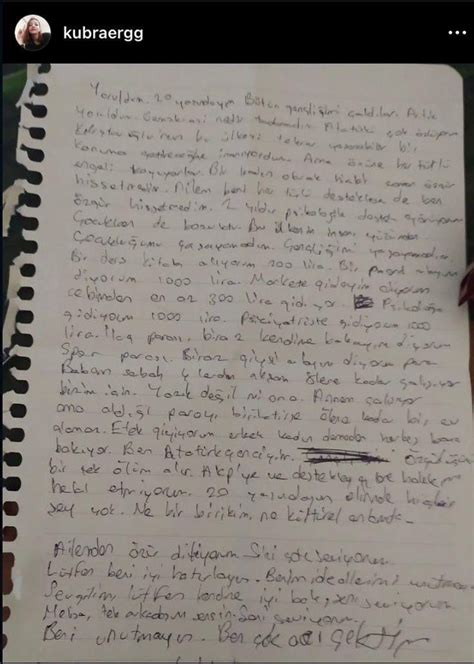 kubraergg
Yoruldum. 20 yaşındayım Bütün gençliğimi çaldılar. Artık
yoruldum. Demokrasi nedir tadamadım. Atatürk'ü çok özlüyorum
Kılıçdaroğlu'nun bu ülkeyi tekrar yaşanabilir bir
konuma getireceğine inanıyordum. Ama önüne her türlü
engeli koyuyorlar. Bir kadın olarak hiçbir zaman özgür
hissetmedim. Ailem beni her türlü desteklese de ben
özgür hissetmedim. 2 yıldır psikolojik destek görüyorum
Çocukken de bozuktu Bu ülkenin insanı yüzünden
Çocukluğumu yaşayamadım. Gençliğimi yaşayamadım.
Bir ders kitabı alıyorum 200 lira. Bir alayım
diyorum 1000 lira. Markete gideyim diyorum
cebimden en az 300 lira gidiyor Psikoloğa
gidiyorum 1000 lira. Psikiyatriste gidiyorum 1000
lira. İlaç parası, biraz kendine bakayım diyorum
Spor parası. Biraz giyisi alayım diyorum para
Babam sabah dan akşam lere kadar çalışıyor
bizim için. Yazık değil mi ona. Annem çalışıyor
ama aldığı parayı biriktirse ölene kadar bir ev
alamaz. Etek giyiyorum erkek kadın demeden herkes bana
bakıyor. Ben Atatürk gençiyim. Özgürlüğüm
bir tek ölüm alır. Akp'ye ve destekleyen halka
helal etmiyorum. 20 yaşındayım elimde hiçbir
şey yok. Ne bir birikim, ne kültürel
Ailemden özür diliyorum Sizi çok seviyorum.
Lütfen beni iyi hatırlayın. Benim ideallerimi unutmayın
Sevgilim lütfen kendine iyi bak, seni seviyorum
tek arkadaşım sensin. Seni seviyorum.
Beni unutmayın. Ben çok acı çektim